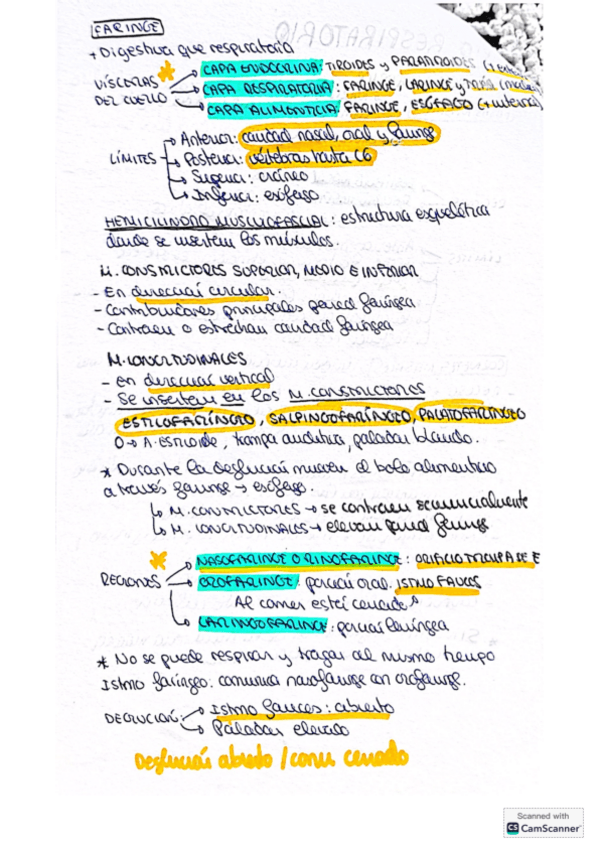 FARINGE
+ Digestiva que respiratoria
VÍSCERAS DEL CUELLO
CAPA ENDOCRINA: TIROIDES y PARATIROIDES
CAPA RESPIRATORIA: FARINGE, LARINGE y
CAPA ALIMENTICIA: FARINGE, ESÓFAGO (+ interna)
LÍMITES
Anterior: cavidad nasal, oral y faringe
Posterior: vértebras hasta C6
Superior: cráneo
Inferior: esófago
HEMICILINDRO MUSCULOFASCIAL: estructura esquelética
donde se insertan los músculos.
M. CONSTRICTORES SUPERIOR, MEDIO E INFERIOR
- En dirección circular.
- Contribuidores principales pared faríngea
- Contraen o estrechan cavidad faríngea
M. LONGITUDINALES
- en dirección vertical
- Se insertan en los M. CONSTRICTORES
ESTILOFARÍNGEO, SALPINGOFARÍNGEO, PALATOFARÍNGEO
O → A. ESTILOIDE, trompa auditiva, paladar blando.
* Durante la deglución mueven el bolo alimenticio
a través faringe → esófago.
M. CONSTRICTORES → se contraen secuencialmente
M. LONGITUDINALES → elevan pared faringe
REGIONES
NASOFARINGE O RINOFARINGE: ORIFICIO TROMPA DE E
OROFARINGE: porción oral. ISTMO FAUCES
Al comer está cerrado
LARINGOFARINGE: porción laríngea
* No se puede respirar y tragar al mismo tiempo
Istmo faríngeo: comunica nasofaringe con orofaringe.
DEGLUCIÓN:
Istmo fauces: abierto
Paladar elevado
Deglución abierto / comer cerrado
Scanned with
CS CamScanner